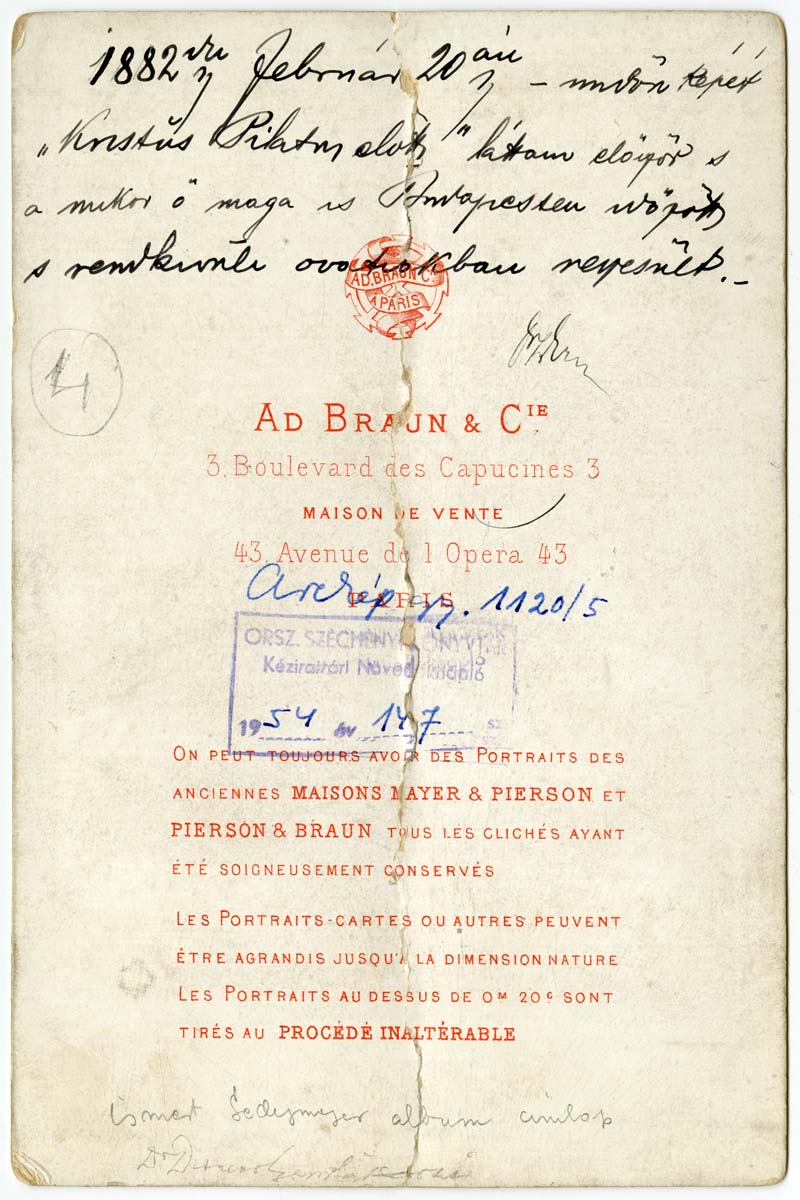 1882 iki Február 20 án – midőn képét
„Krisztus Pilatus előtt" láttam először s
a mikor ő maga is Budapesten időzött
s rendkivüli ovatiokban részesült. –
AD. BRAUN & Cie
A PARIS
4
AD BRAUN & CIE
3, Boulevard des Capucines 3
MAISON DE VENTE
43, Avenue de l Opera 43
PARIS
Arckép gy. 1120/5
ORSZ. SZÉCHÉNYI KÖNYVTÁR
Kézirattári Növedéknapló
1954 év 147 sz
ON PEUT TOUJOURS AVOIR DES PORTRAITS DES
ANCIENNES MAISONS MAYER & PIERSON ET
PIERSON & BRAUN TOUS LES CLICHÉS AYANT
ÉTÉ SOIGNEUSEMENT CONSERVÉS
LES PORTRAITS-CARTES OU AUTRES PEUVENT
ÊTRE AGRANDIS JUSQU'A LA DIMENSION NATURE
LES PORTRAITS AU DESSUS DE 0M 20c SONT
TIRÉS AU PROCÉDÉ INALTÉRABLE
album címlap
Dr